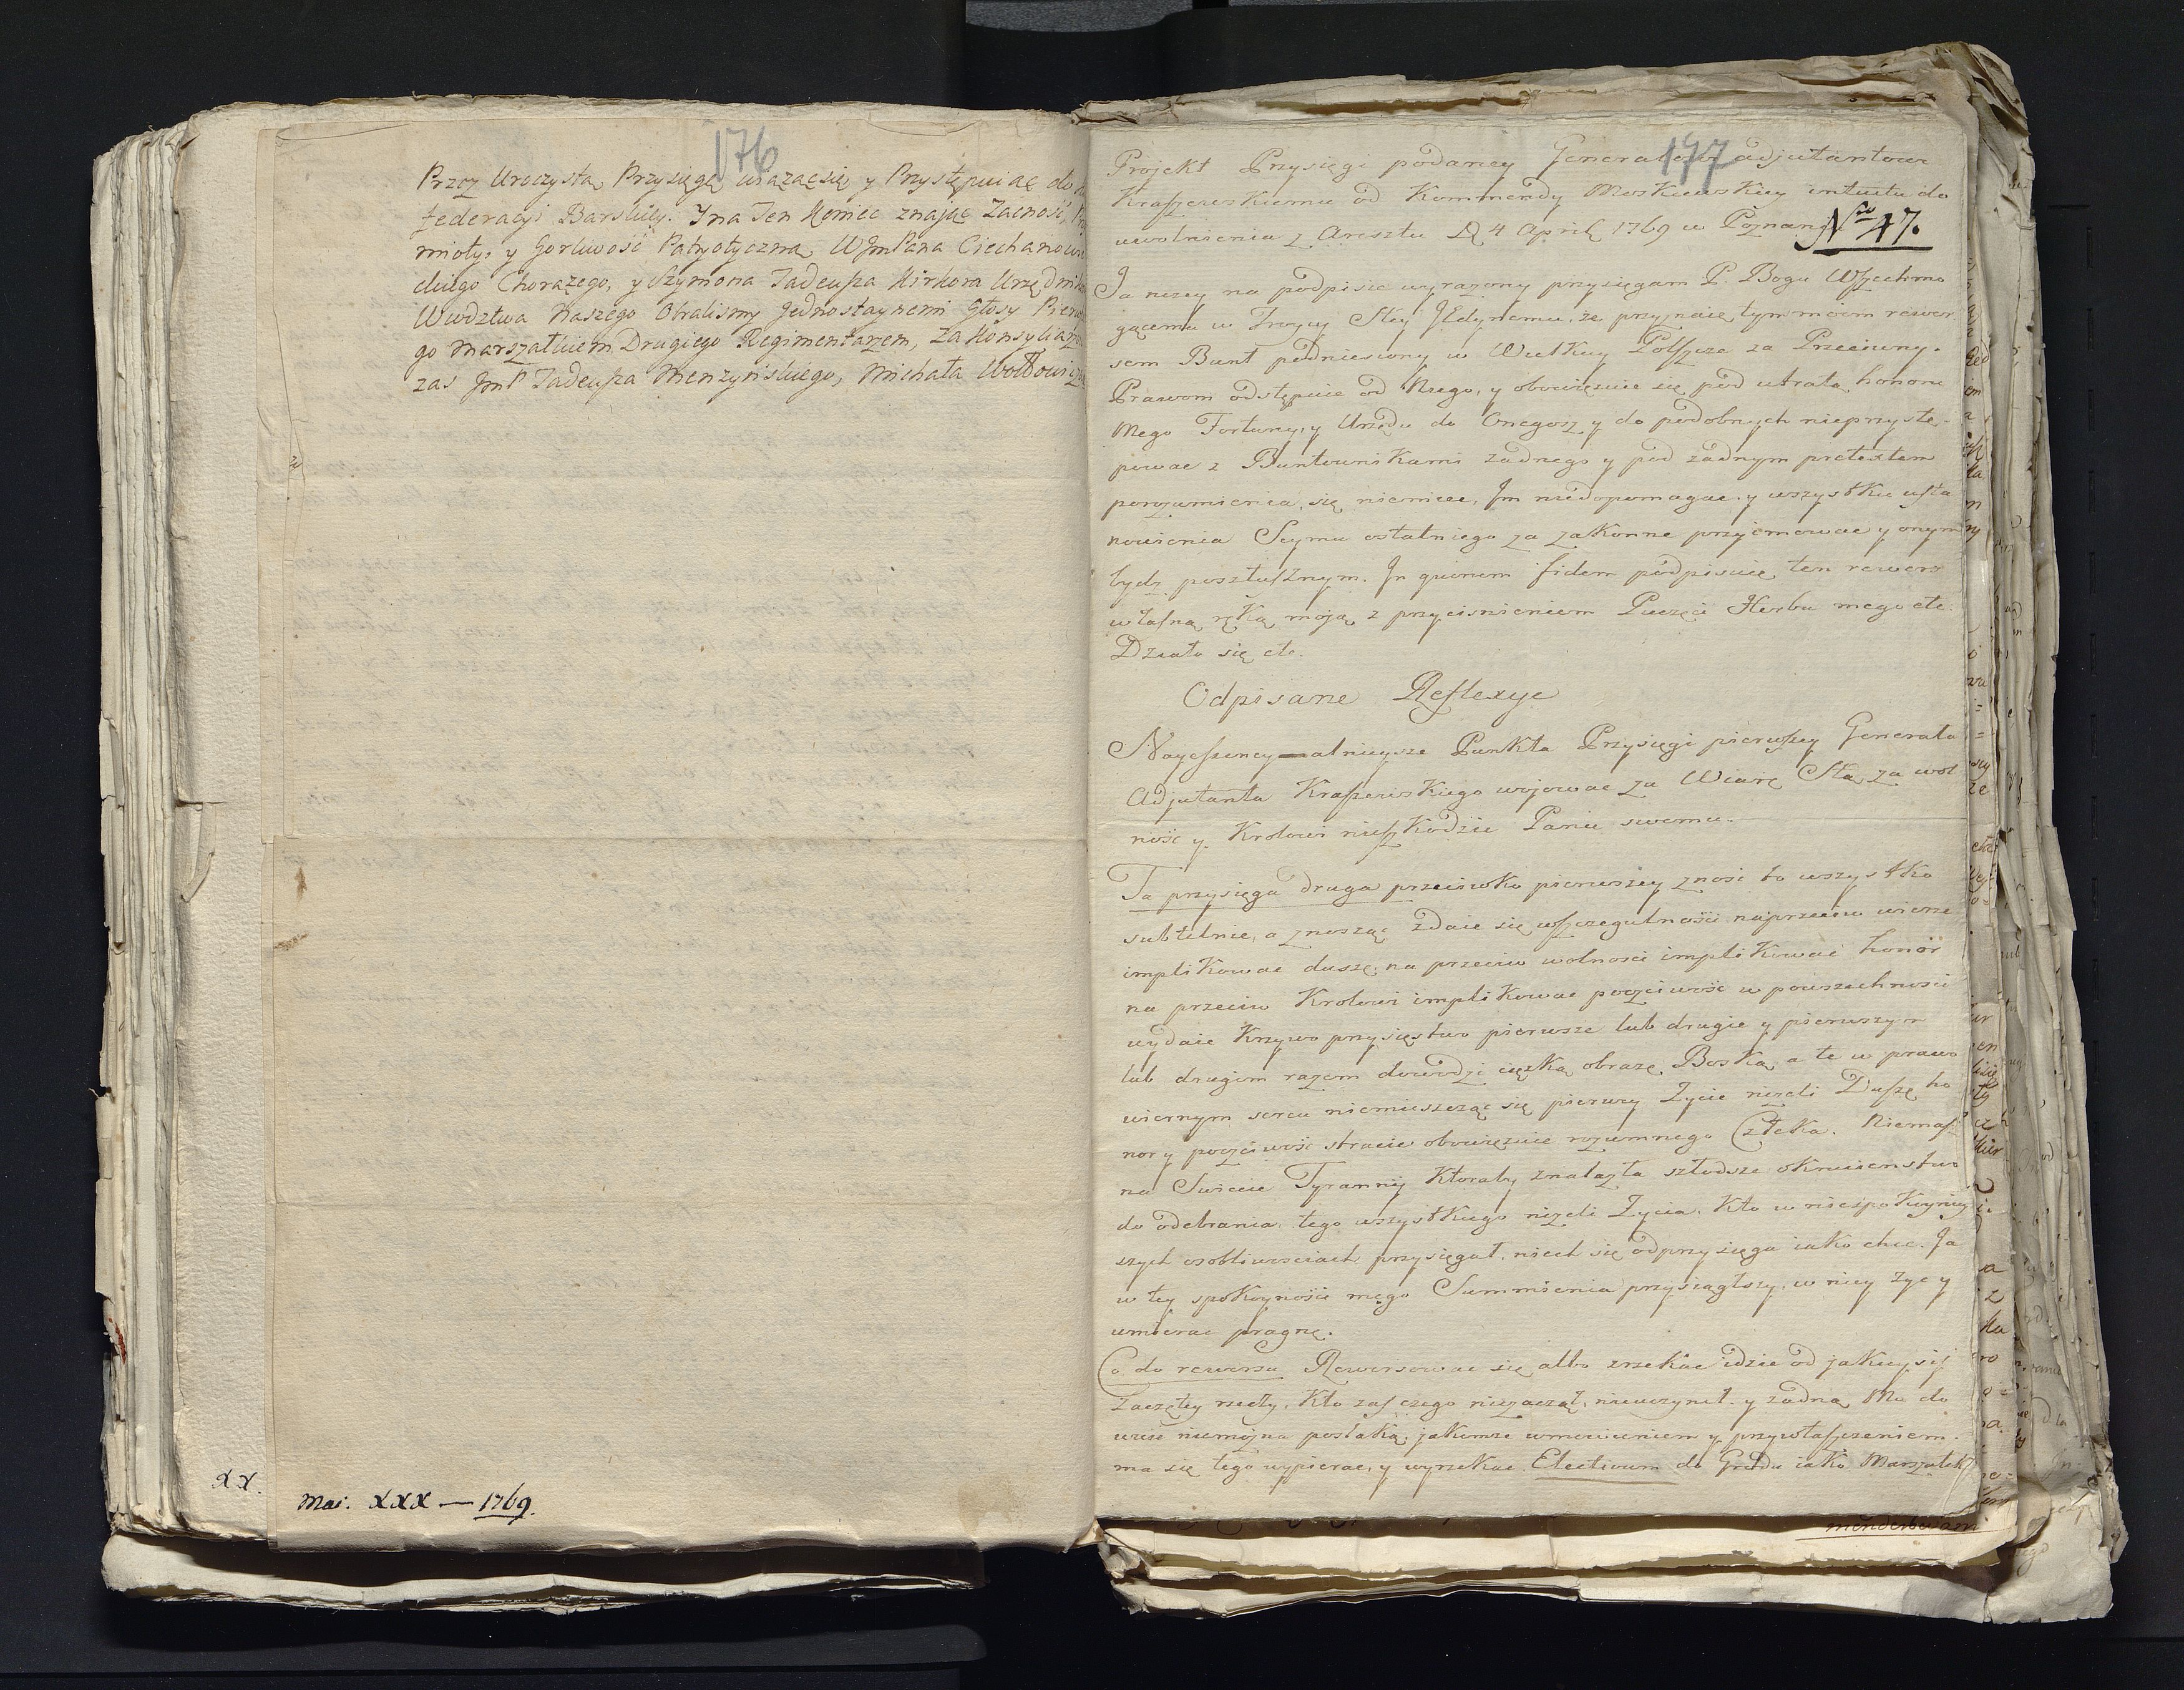 176
Przez Uroczystą Przysięgę wiążąc się y Przystępuiąc do
federacyi Barskiey. Ina Ten Koniec znaiąc Zacność,
mioty, y Gorliwość Patryotyczną WJmPana Ciechanow
Chorążego, y Szymona Tadeusza Kirkora Urzędnik
Wwdztwa Naszego Obralismy Jednostaynemi Głosy Pierw
go Marszałkiem Drugiego Regimentarzem, Za Konsyliarz
zas JmP Tadeusza Menzynskiego, Michała
xx.
Mai. XXX — 1769.
177
Projekt Przysięgi podaney Generałowi adjutantowi
Kraszewskiemu od Kommendy Moskiewskiey intuitu do
uwolnienia z Aresztu D 4 April 1769 w Poznaniu
Nro 47.
Ja nizey na podpisie wyrazony przysięgam P. Bogu Wszechmo
gącemu w Troycy Stey JEdynemu, że przynaię tym moim rewer
sem Bunt podniesiony w Wielkiey Polszcze za Przeciwny.
Prawom odstępuie od Niego, y obowięzuie się pod utratą honoru
Mego Fortuny, y Urzędu do Onegosz y do podobnych nieprzystę-
powac z Buntownikami zadnego y pod żadnym pretextem
porozumienia się niemiec, Jm niedopomagac, y wszystkie usta
nowienia Seymu ostatniego za zakonne przyimowac y onym
bydz poszłusznym. In quorum fidem podpisuię ten rewers
własną ręką moją z przycisnieniem Pieczęci Herbu mego etc.
Działo się etc.
Odpisane Reflexye
Nayessency—alnieysze Punkta Przysięgi pierwszey Generała
Adjutanta Kraszewskiego wojowac za Wiarę Stą, za wol
ność y Krolowi nieszkodzic Panu swemu.
Ta przysięga druga przeciwko pierwszey znosi to wszystko
subtelnie, a znosząc zdaie się wszczegulności naprzeciw wierze
implikowac duszę, na przeciw wolnosci implikować honor
na przeciw Krolowi implikowac poczciwość w powszechności
wydaie Krzywoprzysięstwo pierwsze lub drugie y pierwszym
lub drugim razem dowodzi cięzką obrazę Boską, a te w prawo
wiernym sercu niemieszcząc się pierwey Zycie nizeli Duszę ho
nor y poczciwość stracic obowięzuie rozumnego Człeka. Niemasz
na Swiecie Tyrannij Ktoraby znalazła szłodsze okrucienstwo
do odebrania tego wszystkiego nizeli Zycia. Kto w niespokoyniey
szych osobliwosciach przysięgał, niech się odprzysięga iako chce. Ja
w tey spokoyności mego Summienia przysiągłszy, w niey zyc y
umierac pragnę.
Co do rewersu Rewersowac się albo zrzekac idzie od jakieysij
Zaczętey rzeczy, Kto zas czego niezaczął, nieuczynił y żadną Mu do
wiesc niemozna postacią, jakimze umowieniem y przywłaszczeniem
ma się tego wypierac, y wyrzekac Electivum do Grodu iako Marszałek